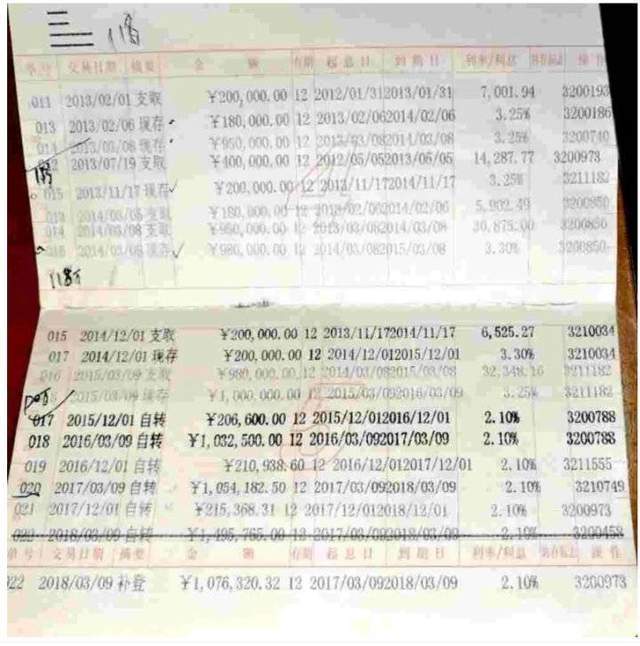 118
单号 交易日期 摘要 金 额 存期 起息日 到期日 利率/利息 操作
011 2013/02/01 支取 ¥200,000.00 12 2012/01/312013/01/31 7,001.94 3200193
013 2013/02/06 现存 ¥180,000.00 12 2013/02/062014/02/06 3.25% 3200186
014 2013/03/08 现存 ¥950,000.00 12 2013/03/082014/03/08 3.25% 3200740
012 2013/07/19 支取 ¥400,000.00 12 2012/06/052013/06/05 14,287.77 3200973
015 2013/11/17 现存 ¥200,000.00 12 2013/11/172014/11/17 3.25% 3211182
013 2014/03/08 支取 ¥180,000.00 12 2013/02/062014/02/06 3200850
014 2014/03/08 支取 ¥950,000.00 12 2013/03/082014/03/08 30,875.00 3200850
016 2014/03/08 现存 ¥980,000.00 12 2014/03/082015/03/08 3.30% 3200850
118万
015 2014/12/01 支取 ¥200,000.00 12 2013/11/172014/11/17 6,525.27 3210034
017 2014/12/01 现存 ¥200,000.00 12 2014/12/012015/12/01 3.30% 3210034
016 2015/03/09 支取 ¥980,000.00 12 2014/03/082015/03/08 32,348.16 3211182
2015/03/09 现存 ¥1,000,000.00 12 2015/03/092016/03/09 3.25% 3211182
017 2015/12/01 自转 ¥206,600.00 12 2015/12/012016/12/01 2.10% 3200788
018 2016/03/09 自转 ¥1,032,500.00 12 2016/03/092017/03/09 2.10% 3200788
019 2016/12/01 自转 ¥210,938.60 12 2016/12/012017/12/01 2.10% 3211555
020 2017/03/09 自转 ¥1,054,182.50 12 2017/03/092018/03/09 2.10% 3210749
021 2017/12/01 自转 ¥215,368.31 12 2017/12/012018/12/01 2.10% 3200973
022 2018/03/09 自转 ¥1,495,765.00 12 2017/03/092018/03/09 2.10% 3200458
单号 交易日期 摘要 金 额 存期 起息日 到期日 利率/利息 操作
022 2018/03/09 补登 ¥1,076,320.32 12 2017/03/092018/03/09 2.10% 3200973